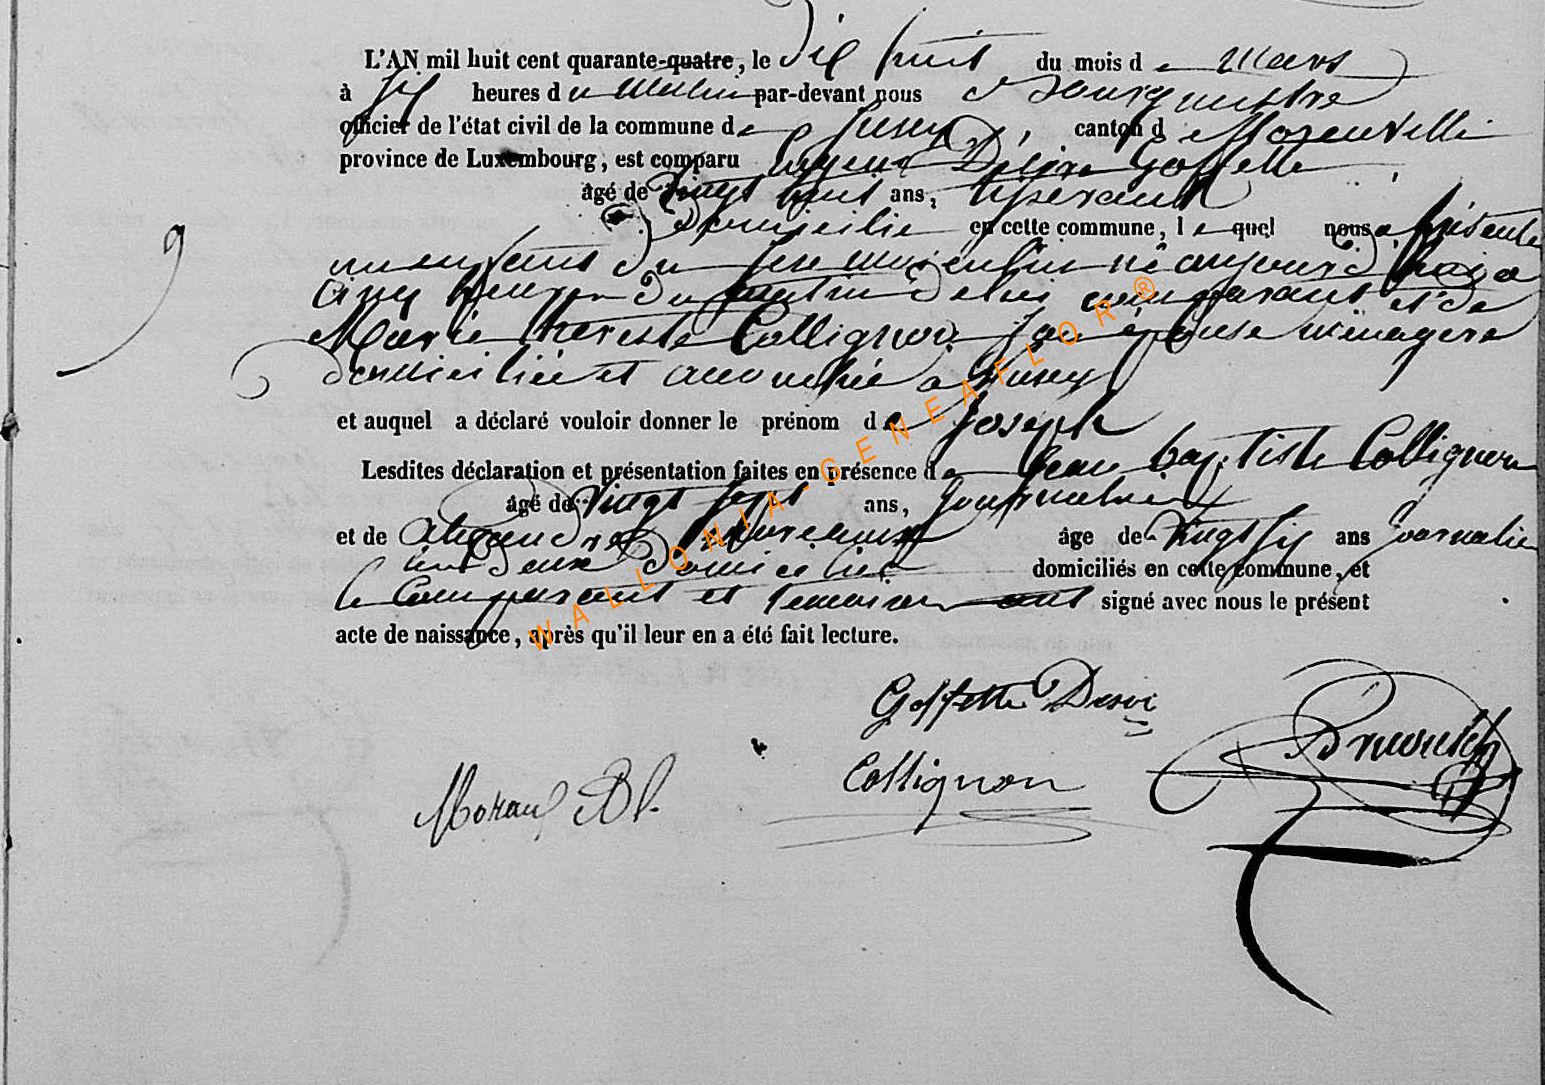 L'AN mil huit cent quarante-quatre, le Dix huit du mois de Mars
à Six heures du Matin par-devant nous Bourguemestre
officier de l'état civil de la commune de Suxy, canton d
province de Luxembourg, est comparu Désiré Goffette
âgé de vingt huit ans,
Domicilié en cette commune, lequel nous a présenté
un enfant du sexe masculin né aujourd'hui a
cinq heures du matin de lui comparant et de
Marie therese Collignon son épouse ménagere
domiciliée et accouchée a Suxy
et auquel a déclaré vouloir donner le prénom de Joseph
Lesdites déclaration et présentation faites en présence de Jean baptiste Collignon
âgé de Vingt sept ans, Journalier
et de Alexandre âge de Vingt six ans journalier
tous deux Domiciliés domiciliés en cette commune, et
le Comparant et temoins ont signé avec nous le présent
acte de naissance, après qu'il leur en a été fait lecture.
9
Goffette Desiré
Collignon
WALLONIA-GENEAFLOR®